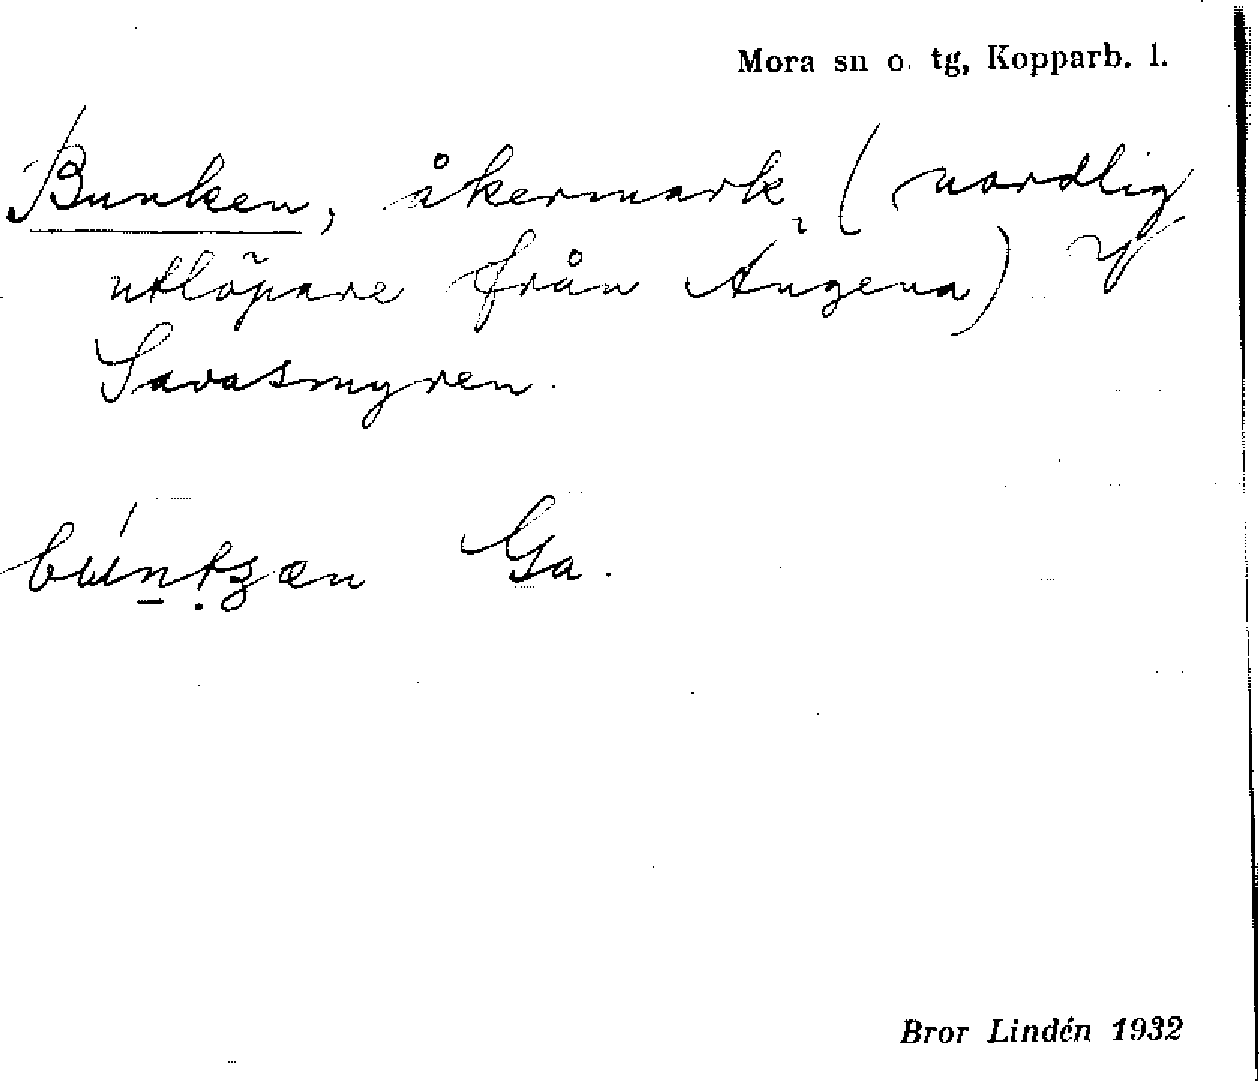 Mora sn o. tg, Kopparb. l.
Bunken, åkermark, (nordlig
utlöpare från Ängena) 
Savasmyren.
Ga.
Bror Lindén 1932